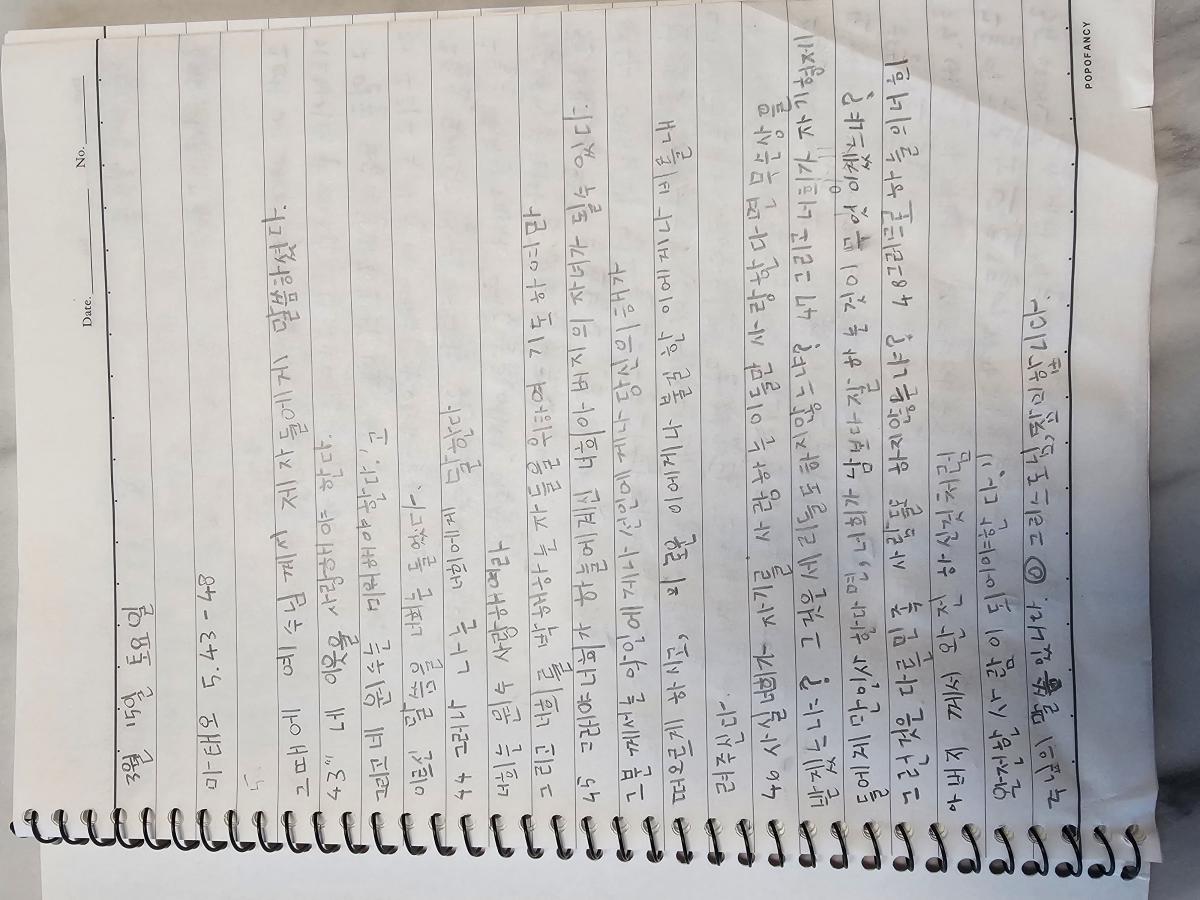 Date. No.
3월 15일 토요일
마태오 5.43-48
그때에 예수님께서 제자들에게 말씀하셨다.
43 " 네 이웃을 사랑해야 한다.
그리고 네 원수는 미워해야 한다.' 고
이르신 말씀을 너희는 들었다.
44 그러나 나는 너희에게 말한다
너희는 원수 사랑해여라
그리고 너희를 박해하는 자들을 위하여 기도하여라
45 그래야 너희가 하늘에 계신 너희 아버지의 자녀가 될 수 있다.
그분께서는 악인에게나 선인에게나 당신의 해가
떠오르게 하시고, 의로운 이에게나 불의한 이에게나 비를 내
려주신다
46 사실 너희가 자기를 사랑하는 이들만 사랑한다면 무슨 상을
받겠느냐? 그것은 세리들도 하지 않느냐? 47 그리고 너희가 자기 형제
들에게만 인사한다면, 너희가 남보다 잘 하는 것이 무엇이겠느냐?
그런 것은 다른 민족 사람들도 하지 않느냐? 48 그러므로 하늘의 너희
아버지께서 완전하신 것처럼
완전한 사람이 되어야 한다."
주님의 말씀입니다. ◎ 그리스도님, 찬미합니다.
POPOFANCY